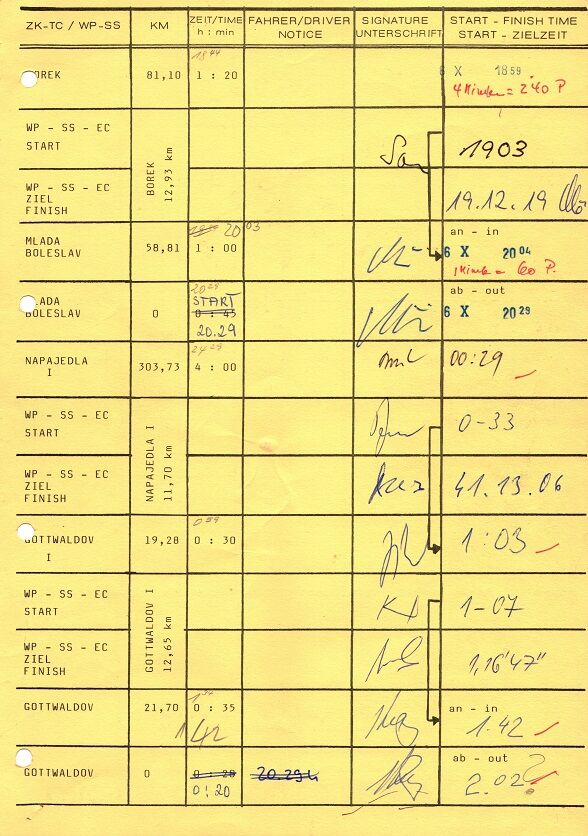 ZK-TC / WP-SS KM ZEIT/TIME FAHRER/DRIVER SIGNATURE START - FINISH TIME
h : min NOTICE UNTERSCHRIFT START - ZIELZEIT
18 44
BOREK 81,10 1 : 20 6 X 18 59
4 Minuten = 240 P
WP - SS - EC
START 1903
BOREK
12,93 km
WP - SS - EC
ZIEL
FINISH 19.12.19
20 03 an - in
MLADA
BOLESLAV 58,81 1 : 00 6 X 20 04
1 Minute = 60 P.
20 29 ab - out
MLADA START
BOLESLAV 0 0 : 45 6 X 20 29
20.29
24 29
NAPAJEDLA 303,73 4 : 00 00:29
I
WP - SS - EC
START 0-33
NAPAJEDLA I
11,70 km
WP - SS - EC
ZIEL
FINISH 41.13.06
0 59
GOTTWALDOV 19,28 0 : 30 1:03
I
WP - SS - EC
START 1-07
GOTTWALDOV I
12,65 km
WP - SS - EC
ZIEL
FINISH 1,16'47"
GOTTWALDOV 21,70 0 : 35 an - in
142 1.42
ab - out
GOTTWALDOV 0 0 : 20 20.29 2.02?
0:20